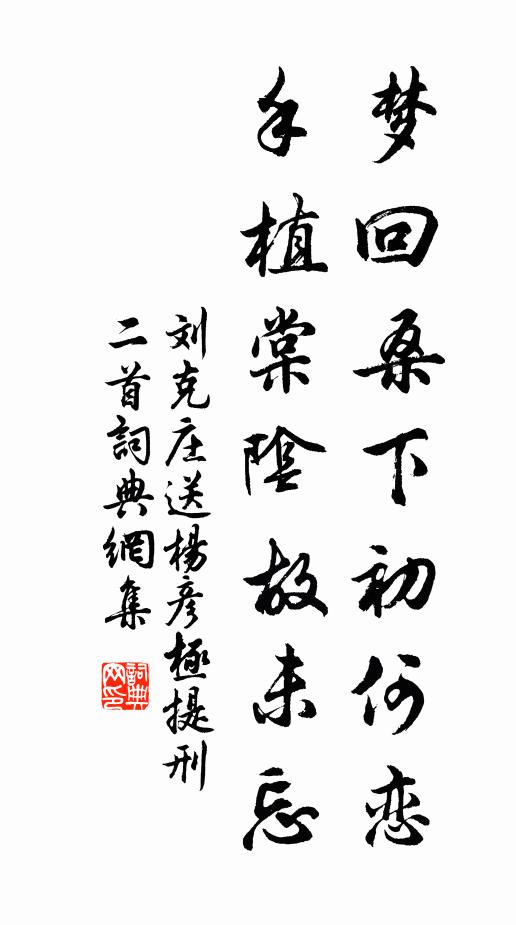 梦回桑下初何恋
手植棠陰故未忘
刘克庄送楊彦極提刑
二首詞典網集
詞典网印